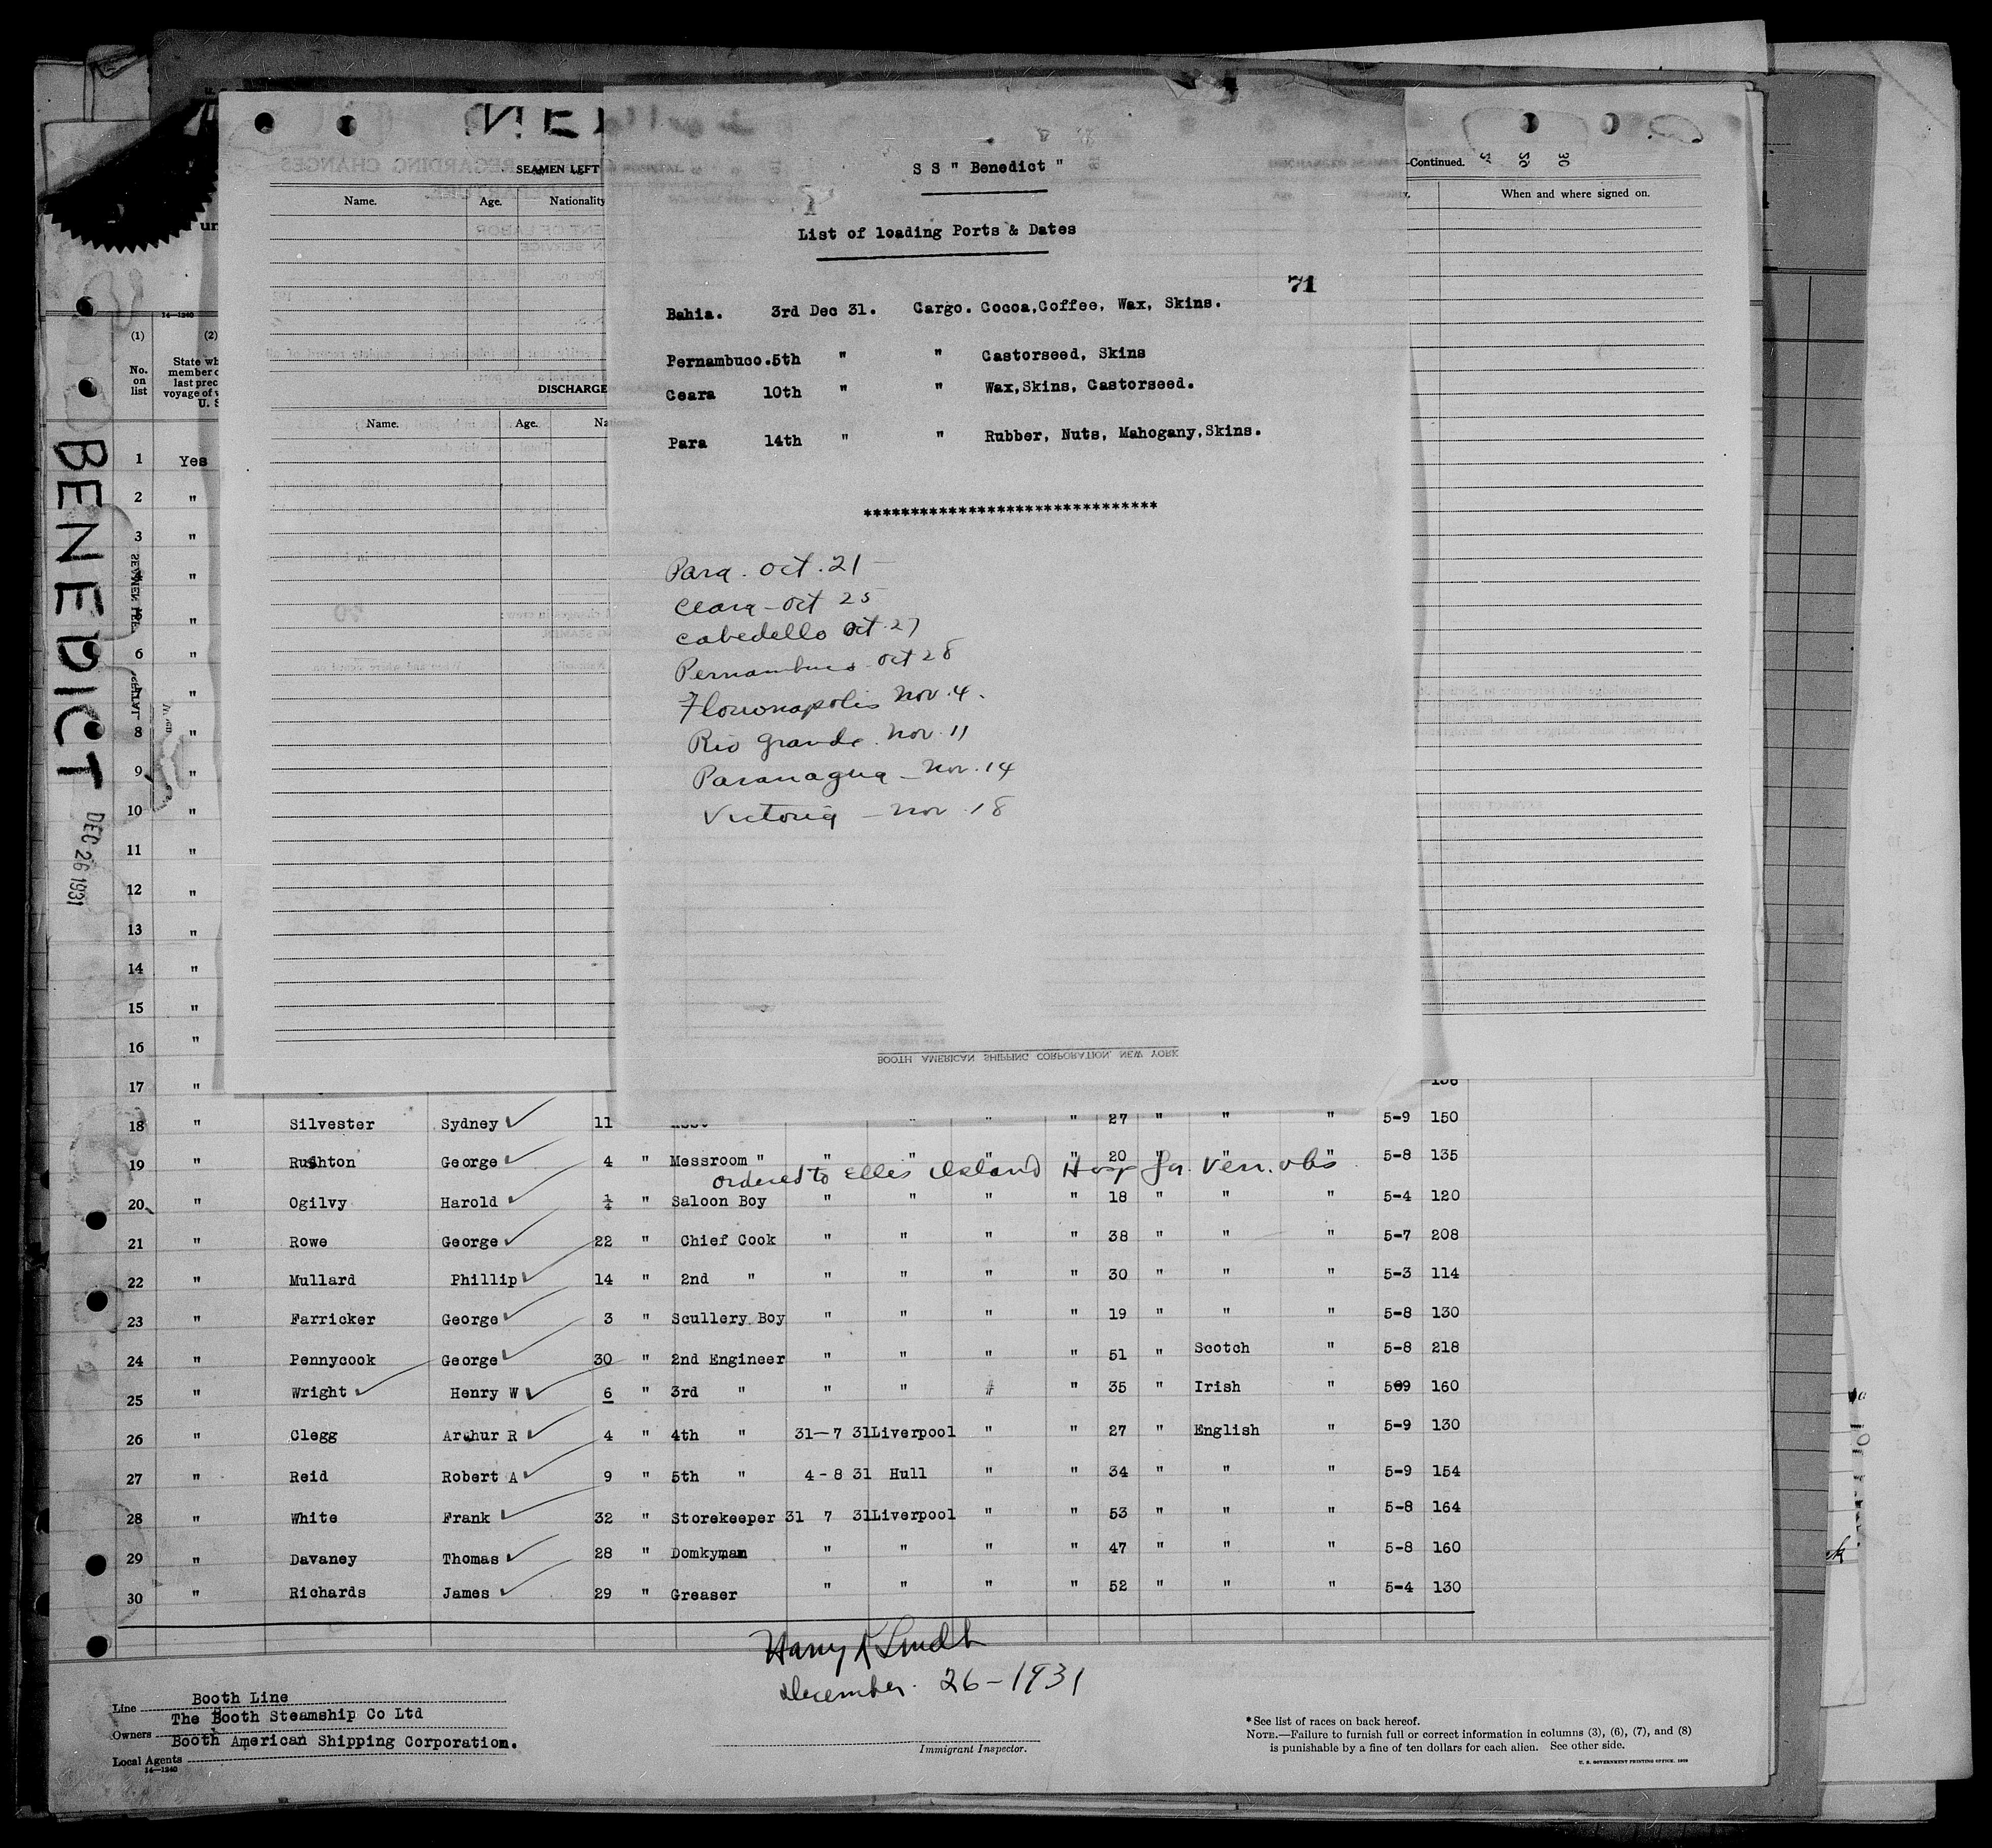 SEAMEN LEFT
-Continued.
Name. Age. Nationality
When and where signed on.
DISCHARGE
Name. Age.
S S " Benedict "
List of loading Ports & Dates
71
Bahia. 3rd Dec 31. Cargo. Cocoa,Coffee, Wax, Skins.
Pernambuco.5th " " Castorseed, Skins
Ceara 10th " " Wax,Skins, Castorseed.
Para 14th " " Rubber, Nuts, Mahogany,Skins.
*******************************
Para. Oct. 21 -
Ceara - Oct 25
Cabedello Oct. 27
Pernambuco Oct 28
Florionapolis Nov. 4.
Rio Grande. Nov. 11
Paranagua - Nov. 14
Victoria - Nov 18
BOOTH AMERICAN SHIPPING CORPORATION, NEW YORK
BENEDICT
DEC 26 1931
14-1240
(1) (2)
No. on list
State wh
member o
last prec
voyage of v
U. S
1 Yes
2 "
3 "
"
"
6 "
"
8 "
9 "
10 "
11 "
12 "
13 "
14 "
15 "
16 "
17 "
18 " Silvester Sydney 11 " " " 27 " " " 5-9 150
19 " Rushton George 4 " Messroom " " " " " 20 " " " 5-8 135
ordered to Ellis Island Hosp for Ven. obs
20 " Ogilvy Harold 1/4 " Saloon Boy " " " " 18 " " " 5-4 120
21 " Rowe George 22 " Chief Cook " " " " 38 " " " 5-7 208
22 " Mullard Phillip 14 " 2nd " " " " " 30 " " " 5-3 114
23 " Farricker George 3 " Scullery Boy " " " " 19 " " " 5-8 130
24 " Pennycook George 30 " 2nd Engineer " " " " 51 " Scotch " 5-8 218
25 " Wright Henry W 6 " 3rd " " " # " 35 " Irish " 569 160
26 " Clegg Arthur R 4 " 4th " 31-7 31 Liverpool " " 27 " English " 5-9 130
27 " Reid Robert A 9 " 5th " 4-8 31 Hull " " 34 " " " 5-9 154
28 " White Frank 32 " Storekeeper 31 7 31 Liverpool " " 53 " " " 5-8 164
29 " Davaney Thomas 28 " Domkyman " " " " 47 " " " 5-8 160
30 " Richards James 29 " Greaser " " " " 52 " " " 5-4 130
December. 26-1931
Immigrant Inspector.
Line Booth Line
Owners The Booth Steamship Co Ltd
Local Agents Booth American Shipping Corporation.
14-1240
* See list of races on back hereof.
NOTE.—Failure to furnish full or correct information in columns (3), (6), (7), and (8)
is punishable by a fine of ten dollars for each alien. See other side.
U. S. GOVERNMENT PRINTING OFFICE. 1929